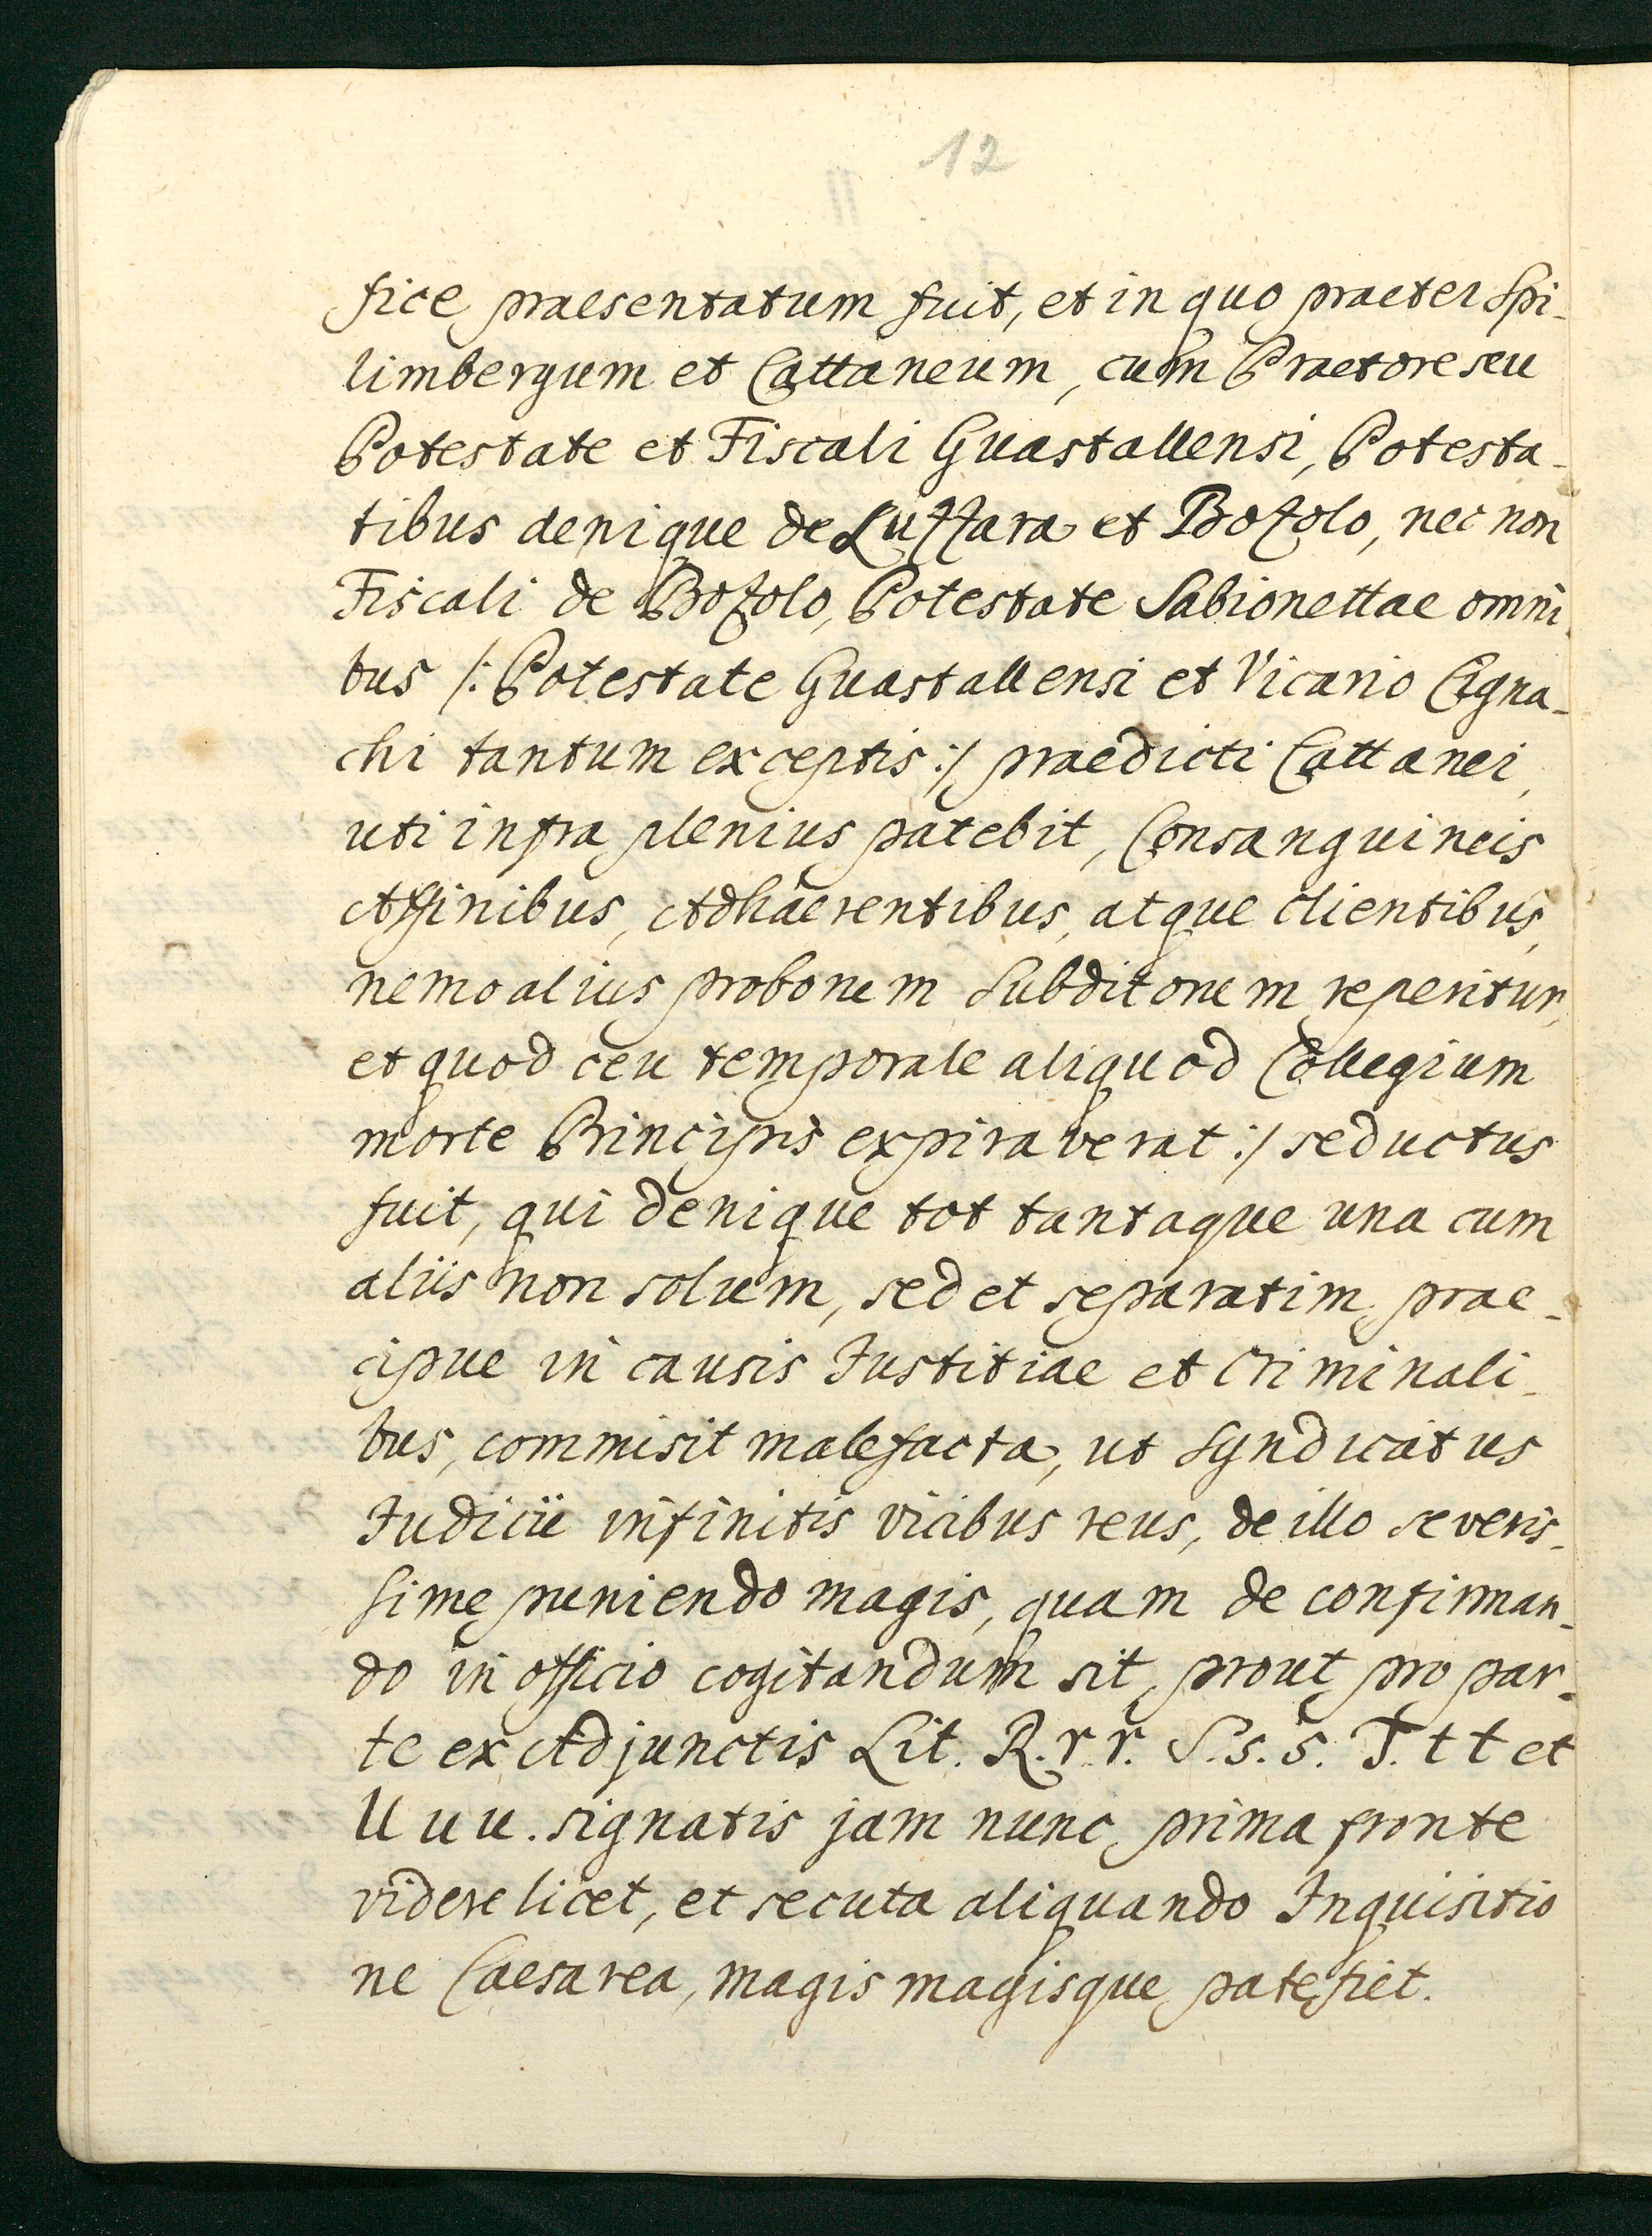 12
fice praesentatum fuit, et in quo praeter Spi-
limbergum et Cattaneum, cum Praetore seu
Potestate et Fiscali Guastallensi, Potesta-
tibus denique de Luzzara et Bozolo, nec non
Fiscali de Bozolo, Potestate Sabionettae omni-
bus /: Potestate Guastallensi et Vicario Cigna-
chi tantum exceptis :/ praedicti Cattanei,
uti infra plenius patebit, Consanguineis
Affinibus, Adhaerentibus, atque clientibus,
nemo alius proborum Subditorum reperitur,
et quod ceu temporale aliquod Collegium
morte Principis expiraverat :/ seductus
fuit, qui denique tot tantaque una cum
aliis non solum, sed et separatim prae-
cipue in causis Justitiae et Criminali-
bus, commisit malefacta, ut Syndicatus
Judicii infinitis vicibus reus, de illo severis-
sime puniendo magis, quam de confirman-
do in officio cogitandum sit, prout pro par-
te ex Adjunctis Lit. R. r. r. S. s. s. T. t t et
U u u. signatis jam nunc prima fronte
videre licet, et secuta aliquando Inquisitio
ne Caesarea, magis magisque patefiet.